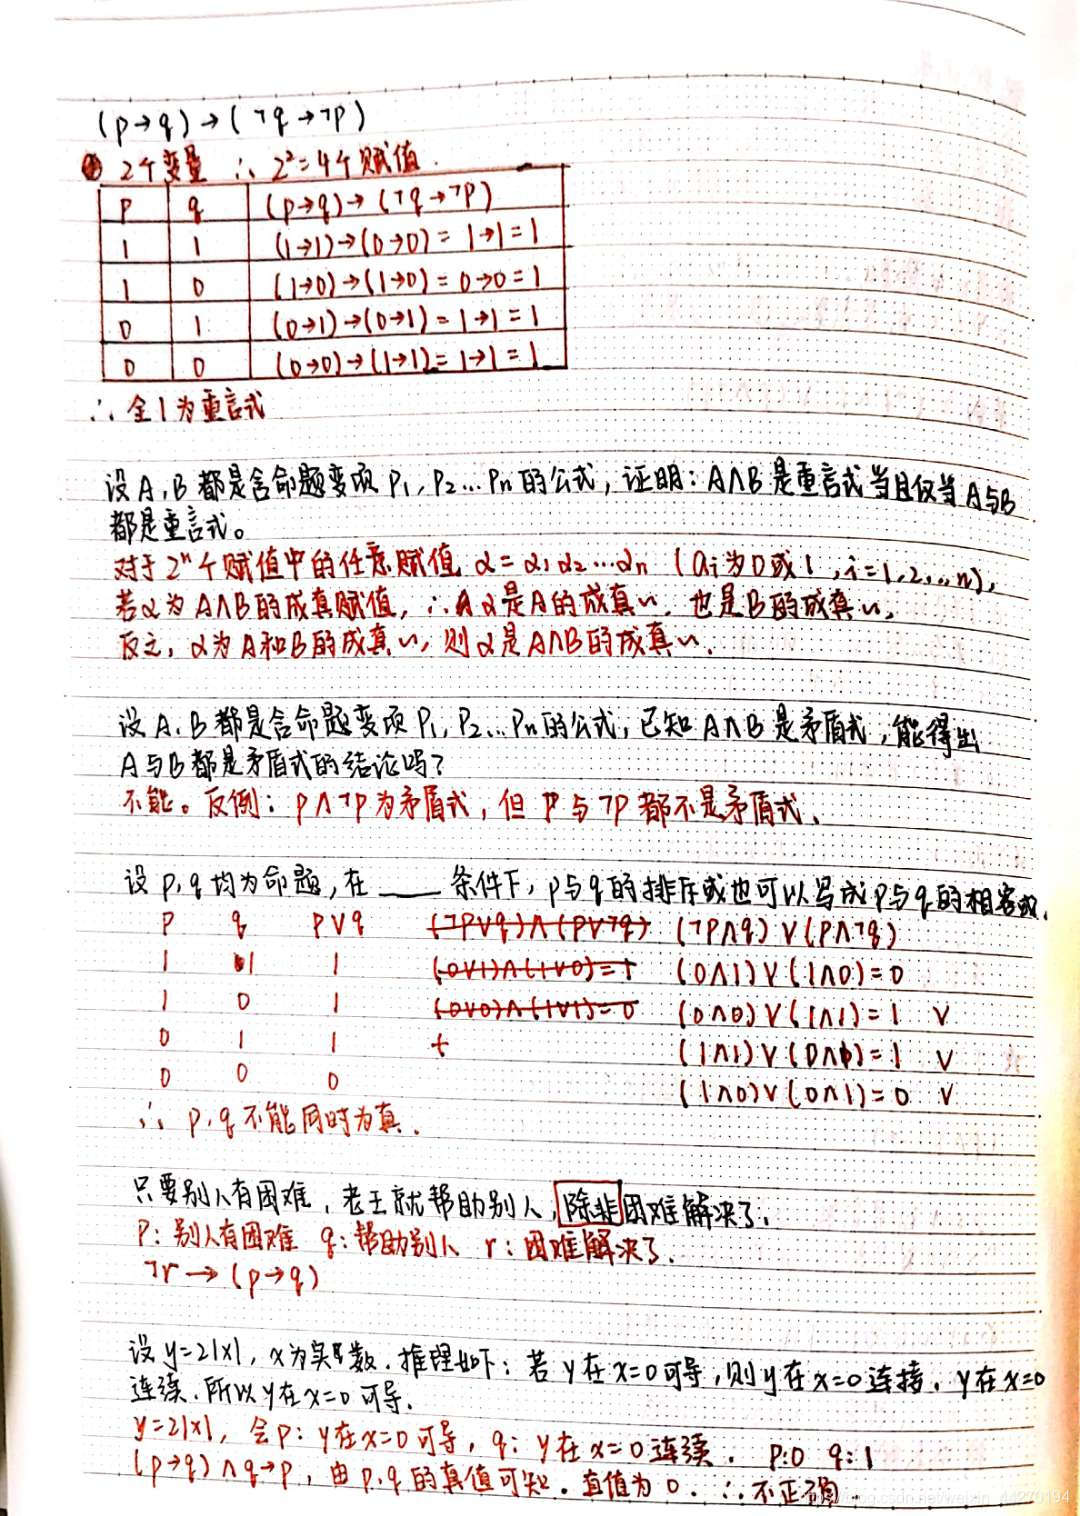 (p→q)→(¬q→¬p)
2个变量 ∴ 2²=4个赋值.
p q (p→q)→(¬q→¬p)
1 1 (1→1)→(0→0)=1→1=1
1 0 (1→0)→(1→0)=0→0=1
0 1 (0→1)→(0→1)=1→1=1
0 0 (0→0)→(1→1)=1→1=1
∴ 全1为重言式
设A,B都是含命题变项P1,P2...Pn的公式,证明:A∧B是重言式当且仅当A与B
都是重言式。
对于2ⁿ个赋值中的任意赋值 α=α1α2...αn (ai为0或1,i=1,2,..,n),
若α为A∧B的成真赋值,∴α是A的成真〃,也是B的成真〃,
反之,α为A和B的成真〃,则α是A∧B的成真〃.
设A,B都是含命题变项P1,P2...Pn的公式,已知A∧B是矛盾式,能得出
A与B都是矛盾式的结论吗?
不能。反例:p∧¬p为矛盾式,但P与¬p都不是矛盾式.
设p,q均为命题,在____条件下,p与q的排斥或也可以写成p与q的相容或.
p q p∨q (¬p∨q)∧(p∨¬q) (¬p∧q)∨(p∧¬q)
1 1 1 (0∨1)∧(1∨0)=1 (0∧1)∨(1∧0)=0
1 0 1 (0∨0)∧(1∨1)=0 (0∧0)∨(1∧1)=1 ∨
0 1 1 (1∧1)∨(0∧0)=1 ∨
0 0 0 (1∧0)∨(0∧1)=0 ∨
∴ p,q不能同时为真.
只要别人有困难,老王就帮助别人,除非困难解决了.
P:别人有困难 q:帮助别人 r:困难解决了.
¬r→(p→q)
设y=2|x|,x为实数.推理如下:若y在x=0可导,则y在x=0连接.y在x=0
连续.所以y在x=0可导.
y=2|x|,令p:y在x=0可导,q:y在x=0连续. p:0 q:1
(p→q)∧q→p,由p,q的真值可知.真值为0.∴不正确